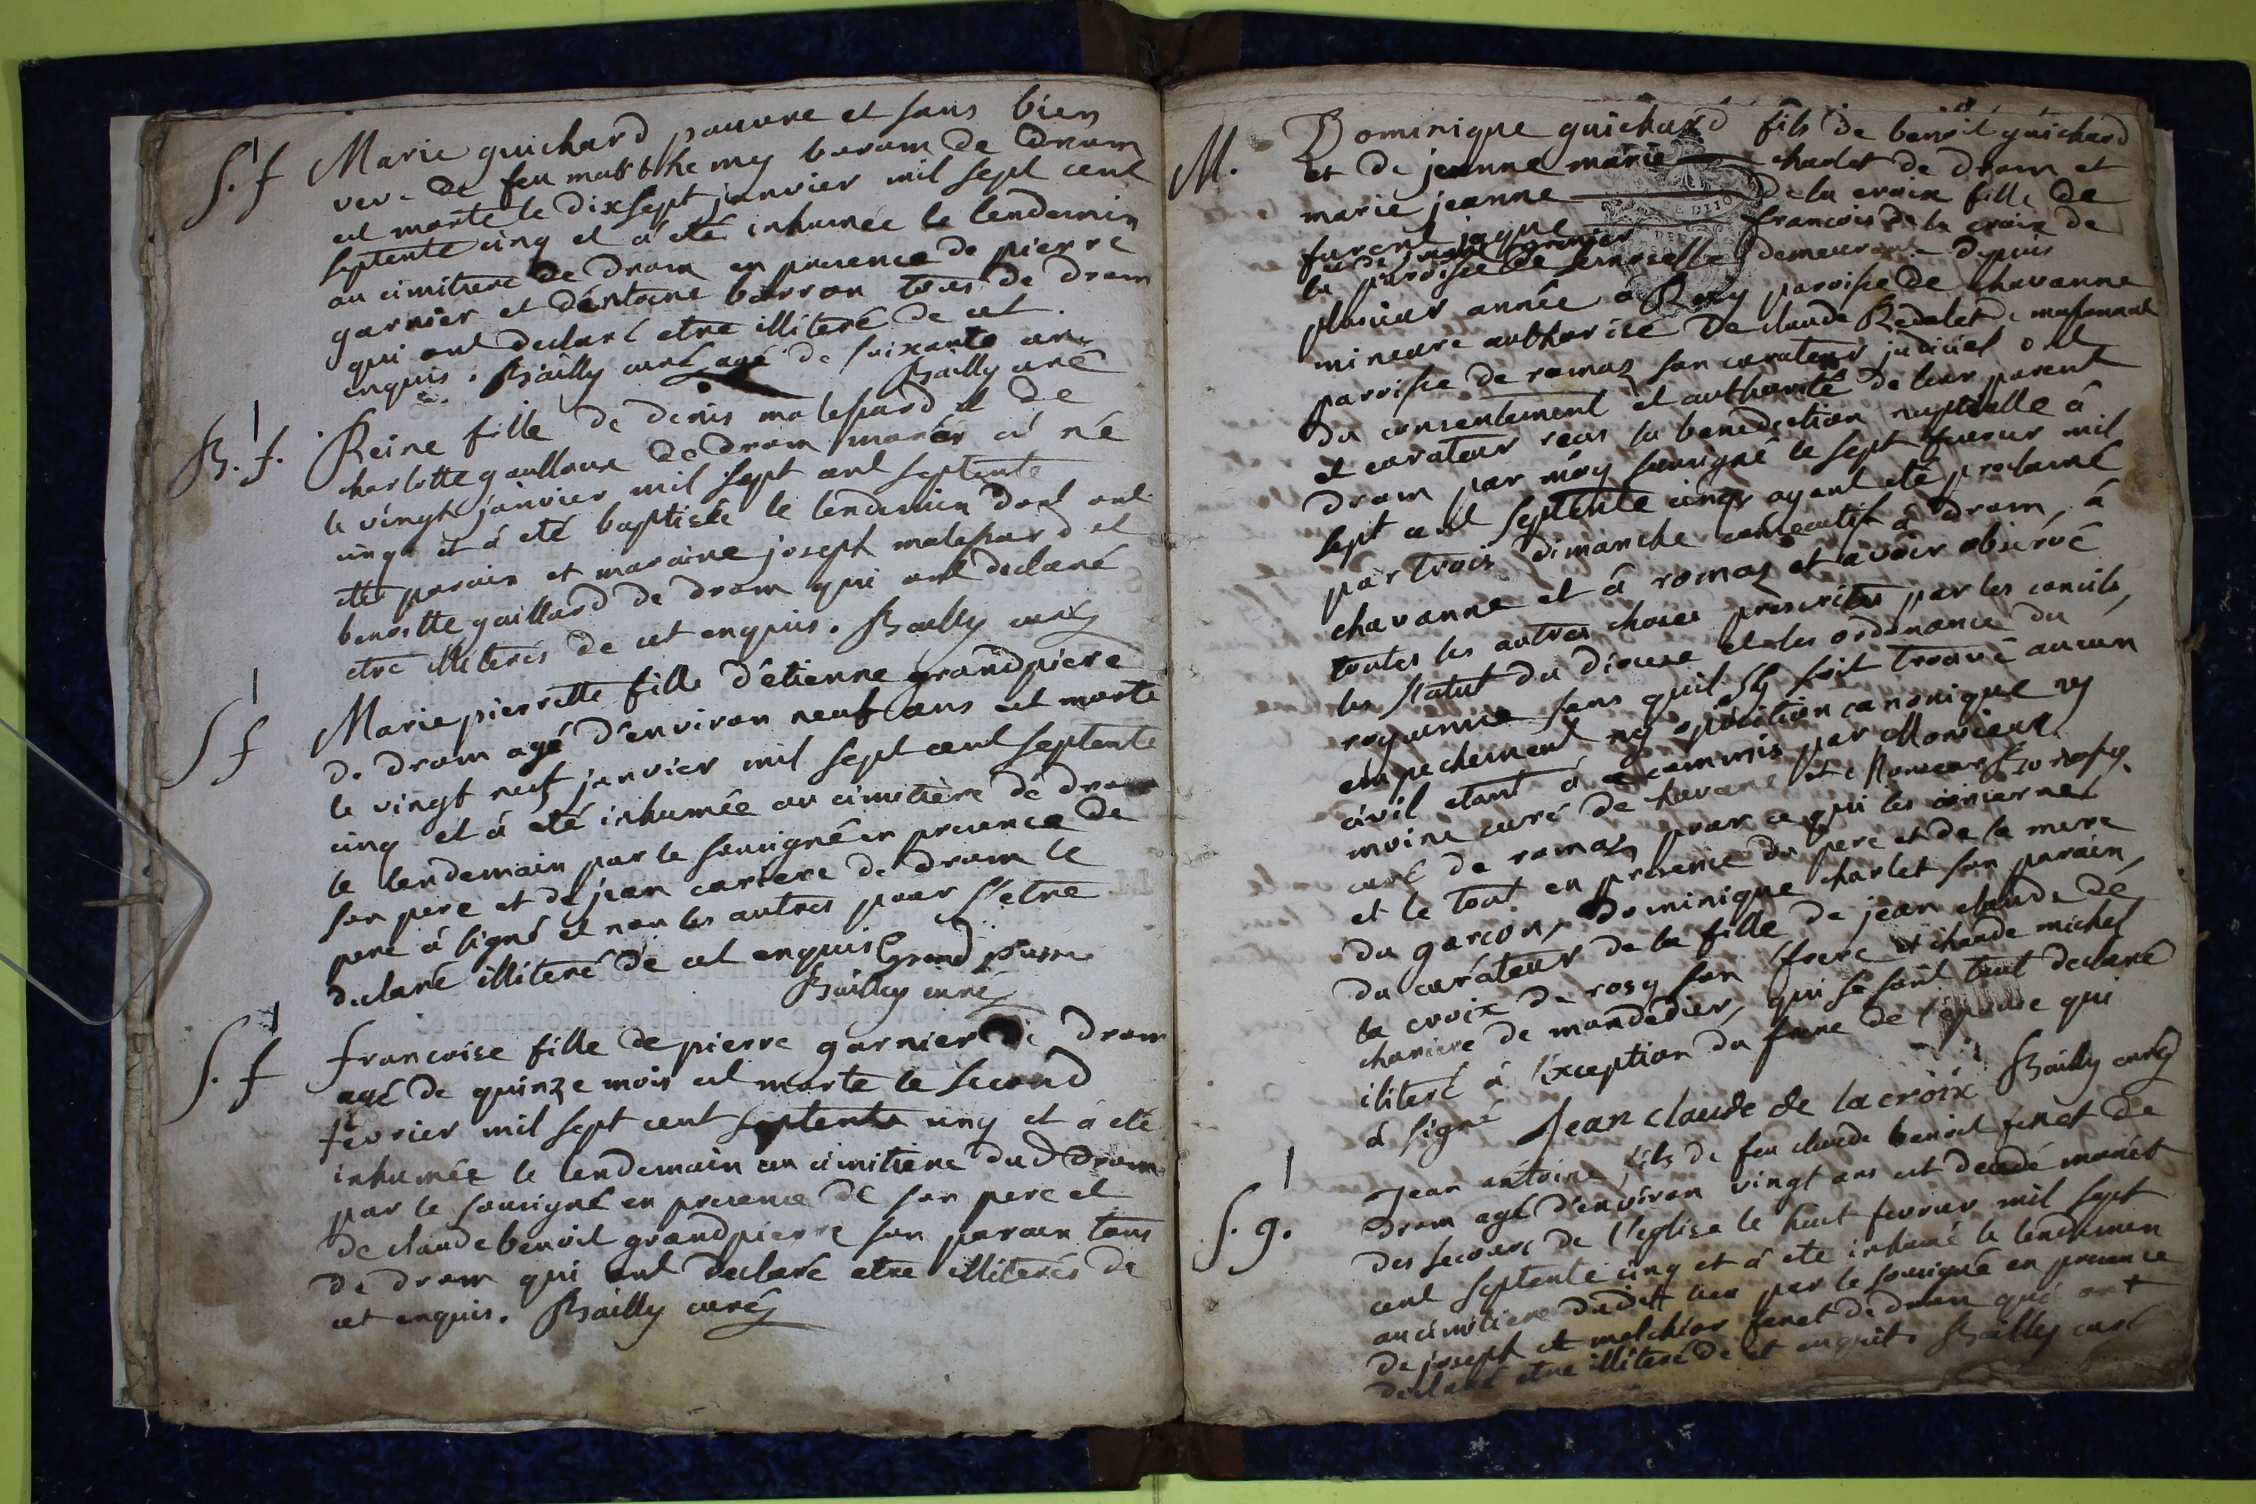 S. f
Marie guichard pauvre et sans bien
veve de feu matthe my baron de dram
est morte le dix sept janvier mil sept cent
septente cinq et a eté inhumée le lendemin
au cimitiere de dram en presence de pierre
garnier et d'entoine barron tous de dram
qui ont declaré etre illiteré de cet
enquis. Bailly curé agé de soixante ans
Bailly curé
B. f.
Reine fille de denis malessard et de
charlotte gaulloux de dram mariés et né
le vingt janvier mil sept cent septente
cinq et a eté baptisée le lendemin dont ont
eté parain et maraine joseph malessard et
benoitte gaillard de dram qui ont declaré
etre illiterés de cet enquis. Bailly curé
S f
Marie pierrette fille d'étienne grandpiere
de dram agé d'environ neuf ans est morte
le vingt neuf janvier mil sept cent septente
cinq et a eté inhumée au cimitière de dram
le lendemain par le sousigné en presence de
son pere et de jean cariere de dram le
pere a signé et non les autres pour s'etre
declaré illiteré de cet enquis Grand pierre
Bailly curé
S. f
francoise fille de pierre garnier de dram
agé de quinze mois est morte le second
fevrier mil sept cent septente cinq et a eté
inhumée le lendemain au cimitiere dud dram
par le sousigné en presence de son pere et
de claude benoit grandpierre son parain tous
de dram qui ont declaré etre illiterés de
cet enquis. Bailly curé
M.
Dominique guichard fils de benoit guichard
et de jeanne marie charlet de dram et
marie jeanne de la croix fille de
furent jaque francois de la croix de
la paroisse de demeurante depuis
plusieur année a Rosy paroisse de chavanne
mineure authorisé de claude Redelet de massonnat
parroisse de romaz son curateur judiciel ont
du consentement et authorité de leur parent
et curateur recus la benediction nuptialle á
dram par moy sousigné le sept fevrier mil
sept cent septente cinq ayant eté proclamé
par trois dimanche consecutif á dram, á
chavanne et á romaz et avoir observé
toutes les autres choses prescrites par les concils,
les statut du diocese et les ordonance du
royaume sans quil sy soit trouvé aucun
empechement ny opposition canonique ny
civil etant á ce commis par Monsieur
moine curé de havane et Monsieur
curé de romaz pour ce qui les concernes
et le tout en presence du pere et de la mere
du garcon, dominique charlet son parain,
du curateur de la fille de jean claude de
la croix de rosy son frere et claude michel
chariere de mandedier, qui se sont tout declaré
iliteré á l'exception du frere de l'epouse qui
á signé Jean claude de lacroix Bailly curé
S. g.
Jean antoine fils de feu claude benoit fenet de
dram agé d'environ vingt ans est decedé muni
des secours de l'eglise le huit fevrier mil sept
cent septente cinq et á ete inhumé le lendemin
au cimitiere dudit lieu par le sousigné en presence
de joseph et melchior fenet de dram qui ont
declaré etre illiteré de et enquit. Bailly curé